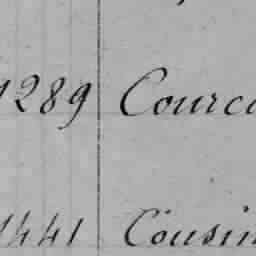 1289 Courc
1441 Cousin